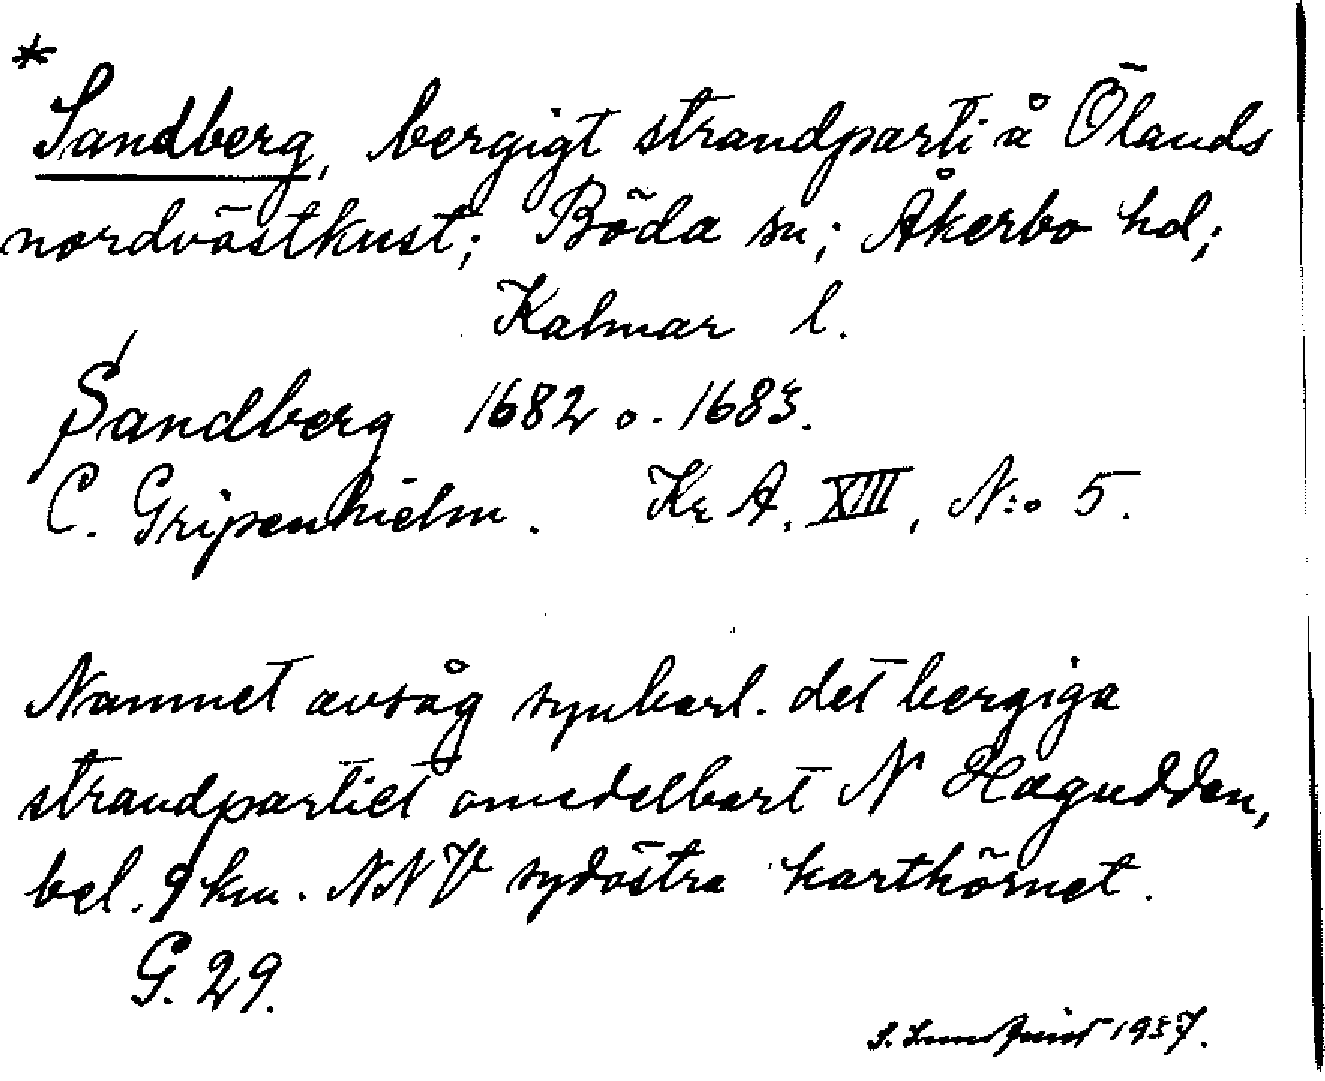 *
Sandberg, bergigt strandparti å Ölands
nordvästkust; Böda sn; Åkerbo hd;
Kalmar l.
Sandberg 1682 o. 1683.
C. Gripenhielm. Kr A. XIII, N:o 5.
Namnet avsåg synbarl. det bergiga
strandpartiet omedelbart N Hagudden,
bel. 9 km. NNV sydöstra karthörnet.
G. 29.
S. Lundquist 1937.